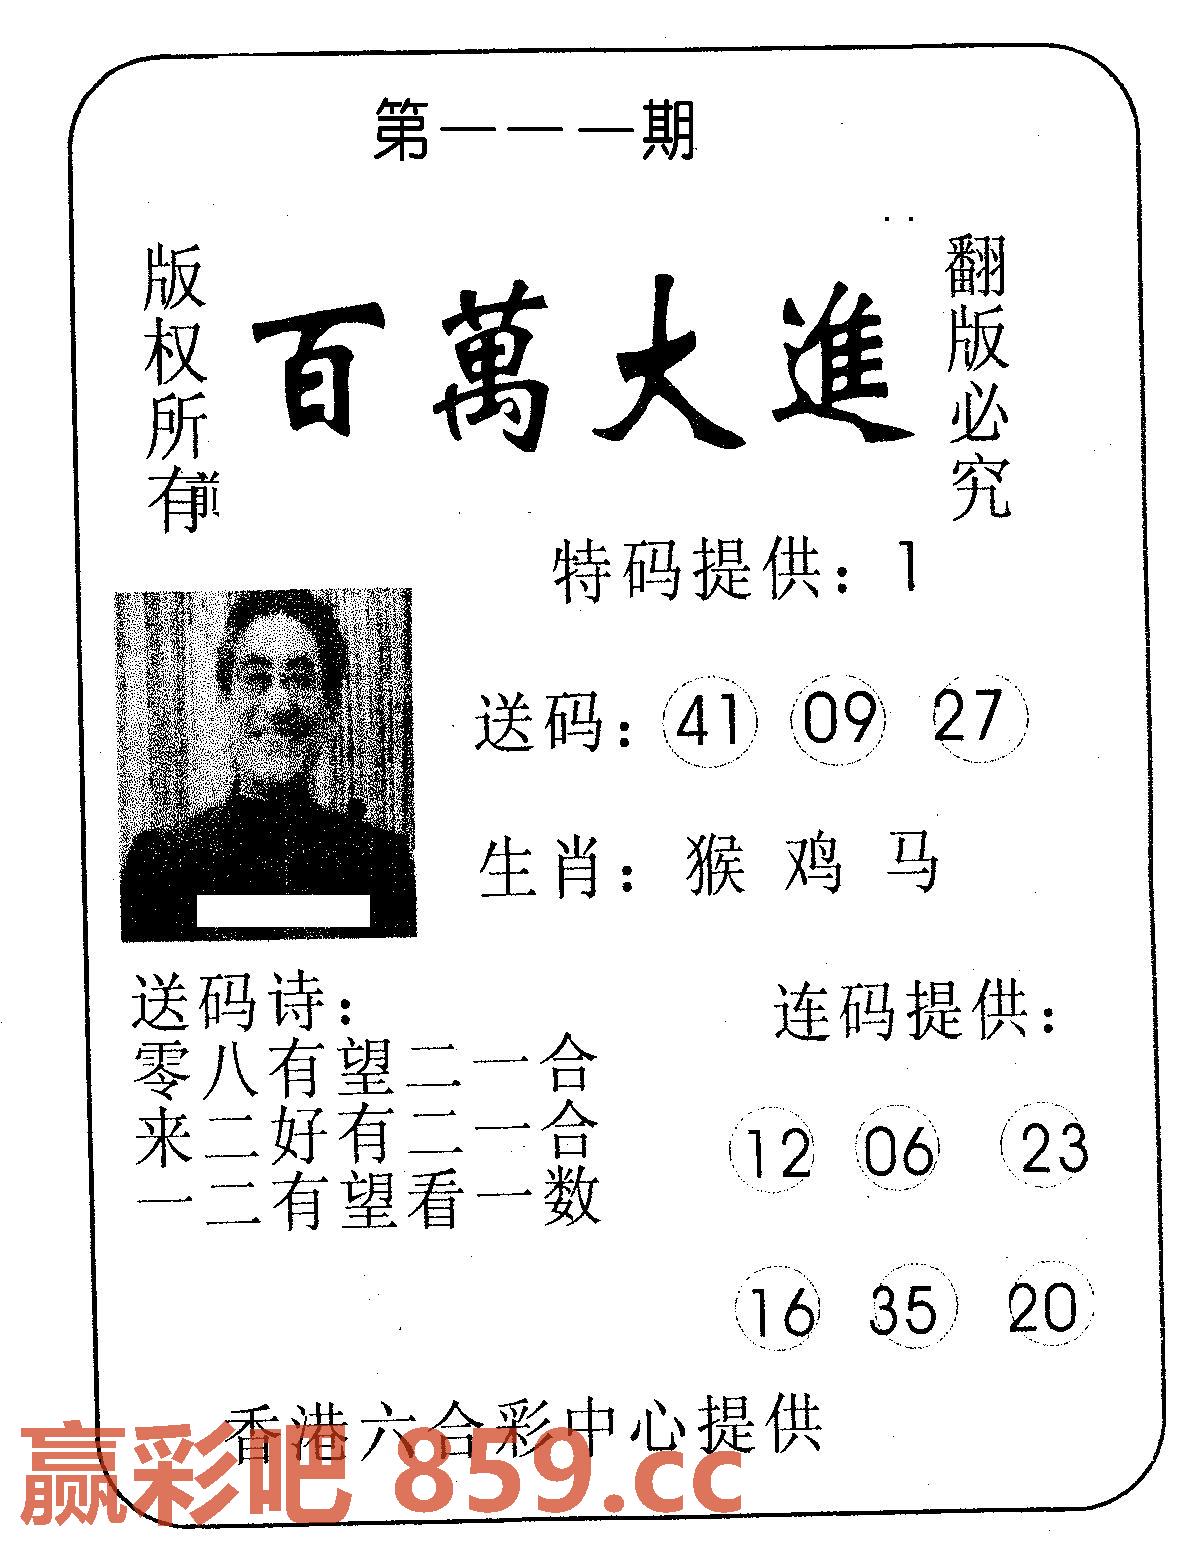 第一一一期
版权所有
百萬大進
翻版必究
特码提供：1
送码：41 09 27
生肖：猴 鸡 马
送码诗：
零八有望二一合
来二好有二一合
一二有望看一数
连码提供：
12 06 23
16 35 20
香港六合彩中心提供
赢彩吧 859.cc